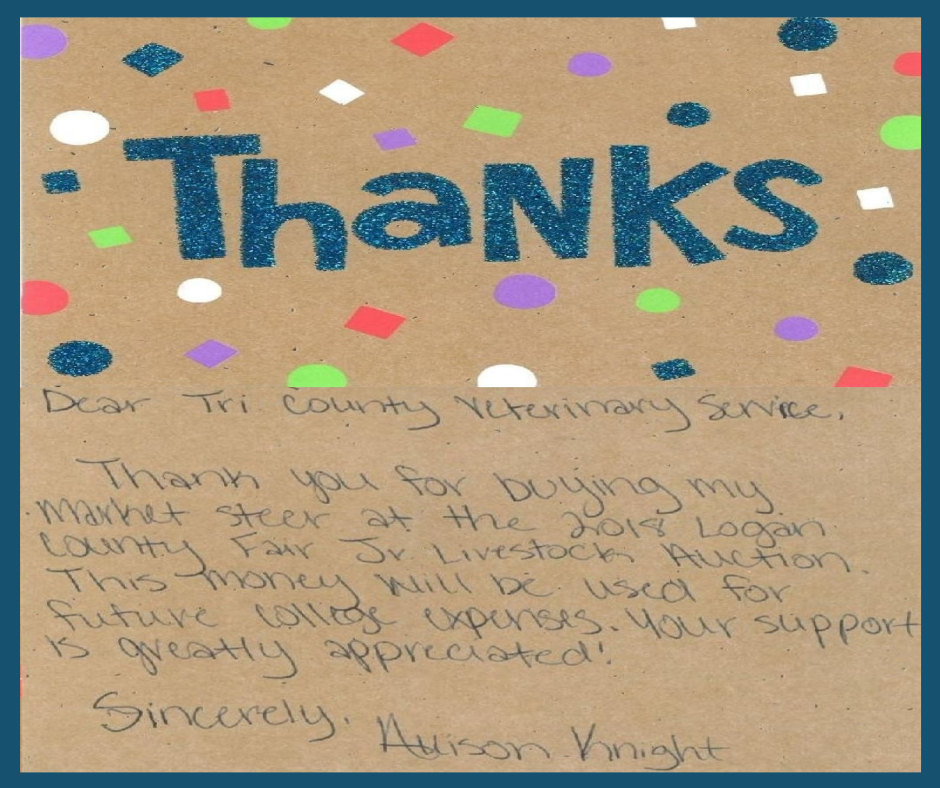 Thanks
Dear Tri County Veterinary Service,
Thank you for buying my
market steer at the 2018 Logan
County Fair Jr. Livestock Auction.
This money will be used for
future college expenses. Your support
is greatly appreciated!
Sincerely,
Allison Knight